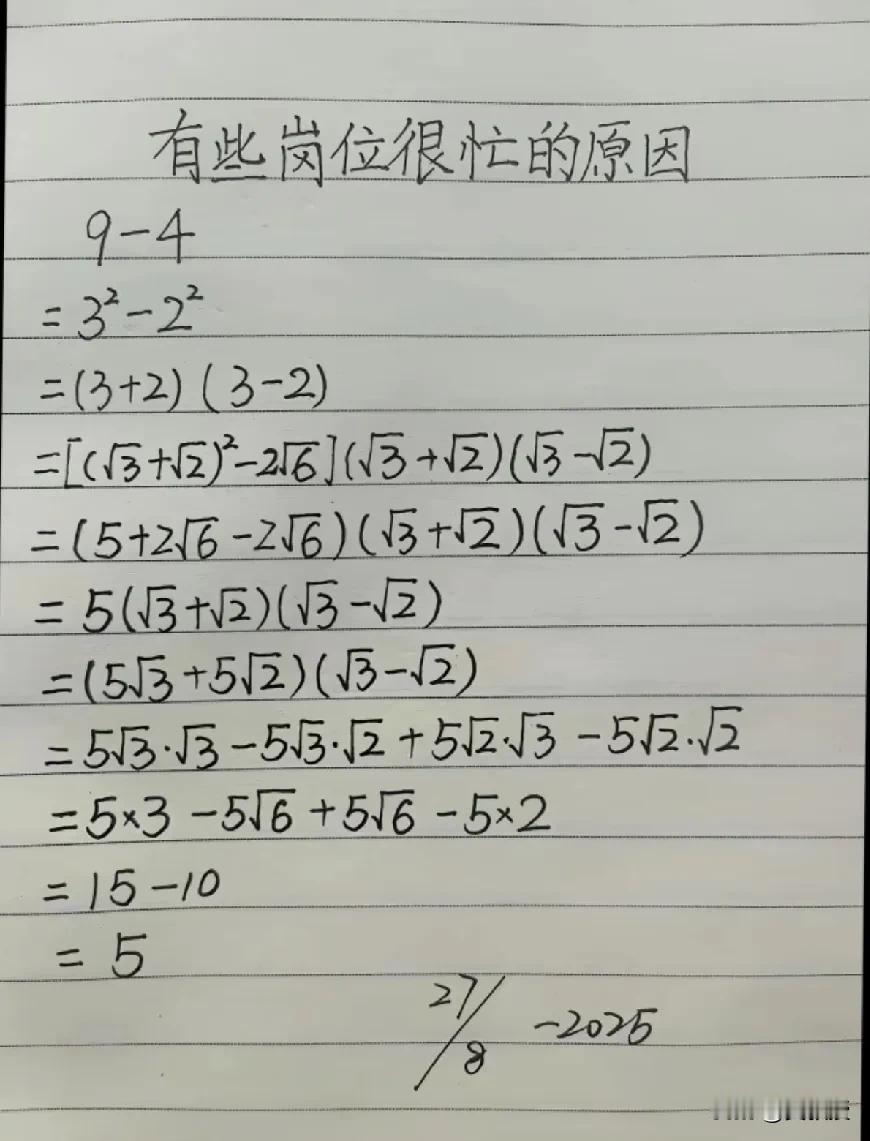 有些岗位很忙的原因
9-4
=3²-2²
=(3+2)(3-2)
=[(√3+√2)²-2√6](√3+√2)(√3-√2)
=(5+2√6-2√6)(√3+√2)(√3-√2)
=5(√3+√2)(√3-√2)
=(5√3+5√2)(√3-√2)
=5√3·√3-5√3·√2+5√2·√3-5√2·√2
=5×3-5√6+5√6-5×2
=15-10
=5
27/8 -2025